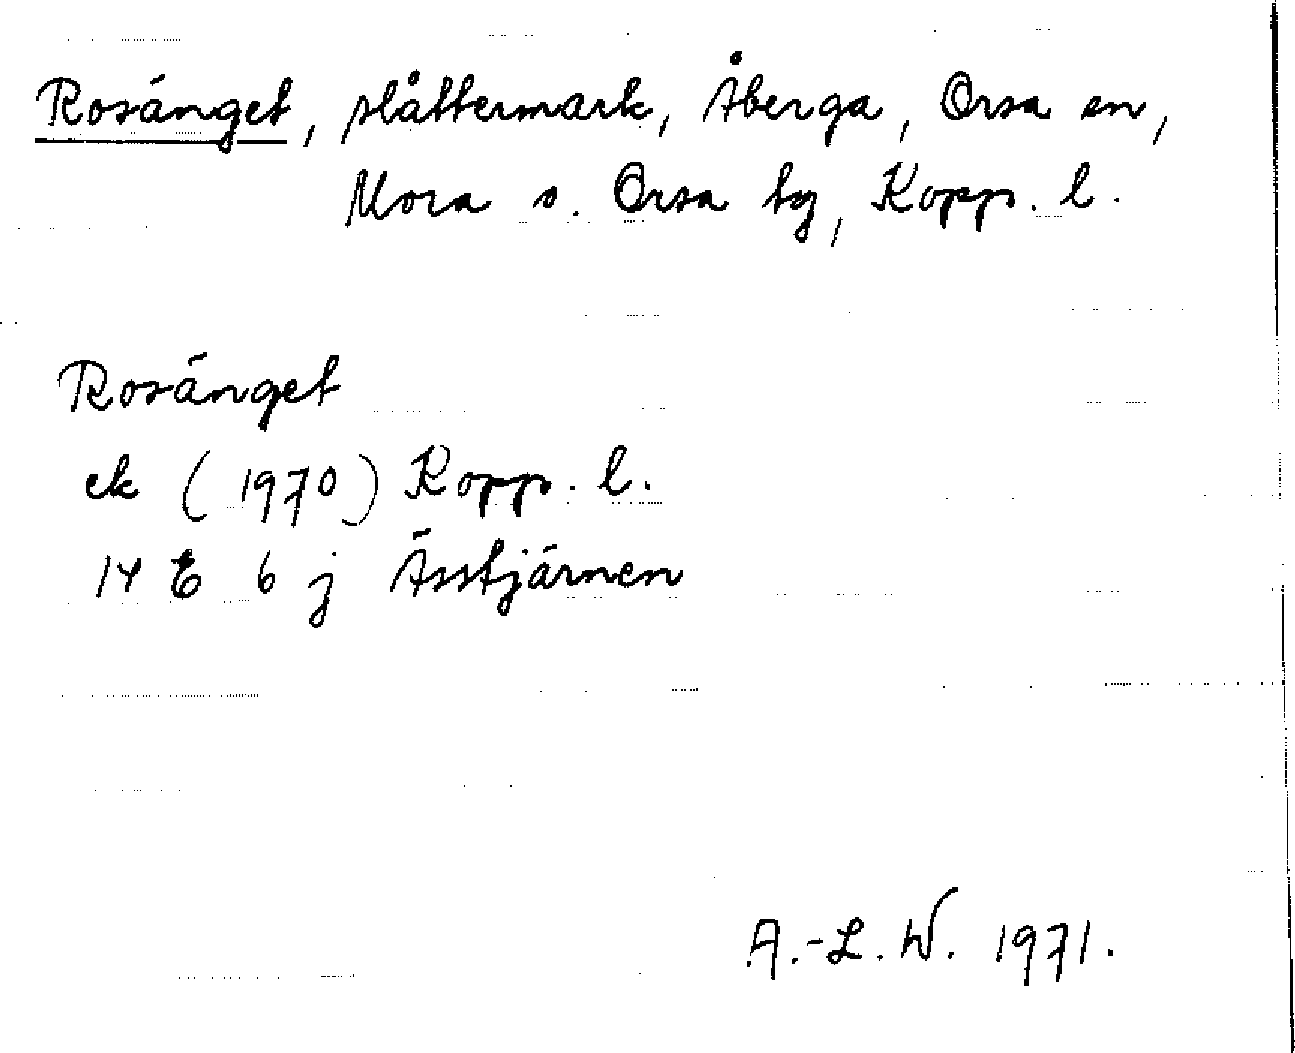 Rosänget, slåttermark, Åberga, Orsa sn,
Mora o. Orsa tg, Kopp. l.
Rosänget
ek (1970) Kopp. l.
14 E 6 j Ässtjärnen
A.-L. W. 1971.